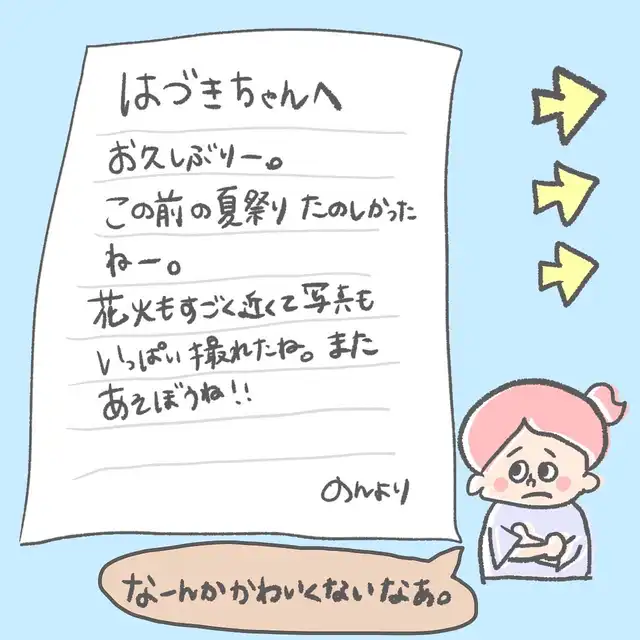 はづきちゃんへ
お久しぶりー。
この前の夏祭りたのしかった
ねー。
花火もすごく近くて写真も
いっぱい撮れたね。また
あそぼうね!!
のんより
なーんかかわいくないなぁ。